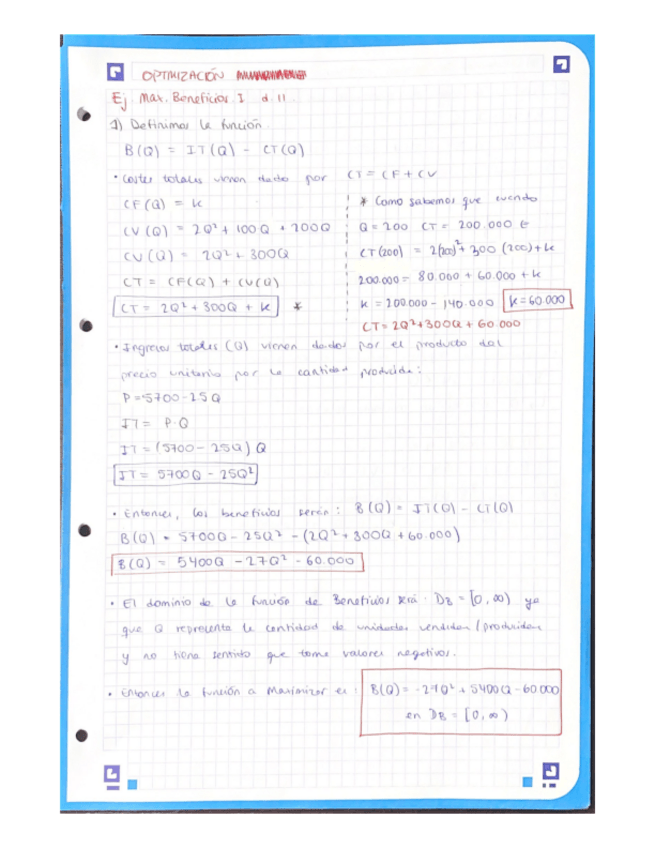 OPTIMIZACIÓN
Ej. Max. Beneficios I d 11.
1) Definimos la función.
B(Q) = IT(Q) - CT(Q)
• Costes totales vienen dados por CT = CF + CV
CF(Q) = K
CV(Q) = 2Q² + 100Q + 200Q
CV(Q) = 2Q² + 300Q
CT = CF(Q) + CV(Q)
CT = 2Q² + 300Q + K *
* Como sabemos que cuando
Q = 200 CT = 200.000 €
CT(200) = 2(200)² + 300 (200) + K
200.000 = 80.000 + 60.000 + K
K = 200.000 - 140.000 K = 60.000
CT = 2Q² + 300Q + 60.000
• Ingresos totales (Q) vienen dados por el producto del
precio unitario por la cantidad producida:
P = 5700 - 25Q
IT = P · Q
IT = (5700 - 25Q) Q
IT = 5700Q - 25Q²
• Entonces, los beneficios serán: B(Q) = IT(Q) - CT(Q)
B(Q) = 5700Q - 25Q² - (2Q² + 300Q + 60.000)
B(Q) = 5400Q - 27Q² - 60.000
• El dominio de la función de Beneficios será: DB = [0, ∞) ya
que Q representa la cantidad de unidades vendidas/producidas
y no tiene sentido que tome valores negativos.
• Entonces la función a Maximizar es: B(Q) = -27Q² + 5400Q - 60.000
en DB = [0, ∞)